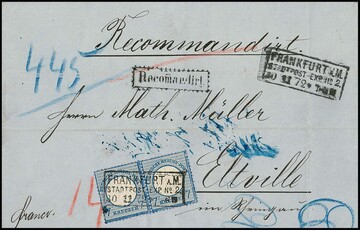 Recommandirt.
445
Recomandirt.
FRANKFURT A.M.
STADTPOST-EXP. No 2.
30 11 72
Herrn Math. Müller
Eltville
im Rheingau
FRANKFURT A.M.
STADTPOST-EXP No 2.
30 11 72
KREUZER
franco.
14